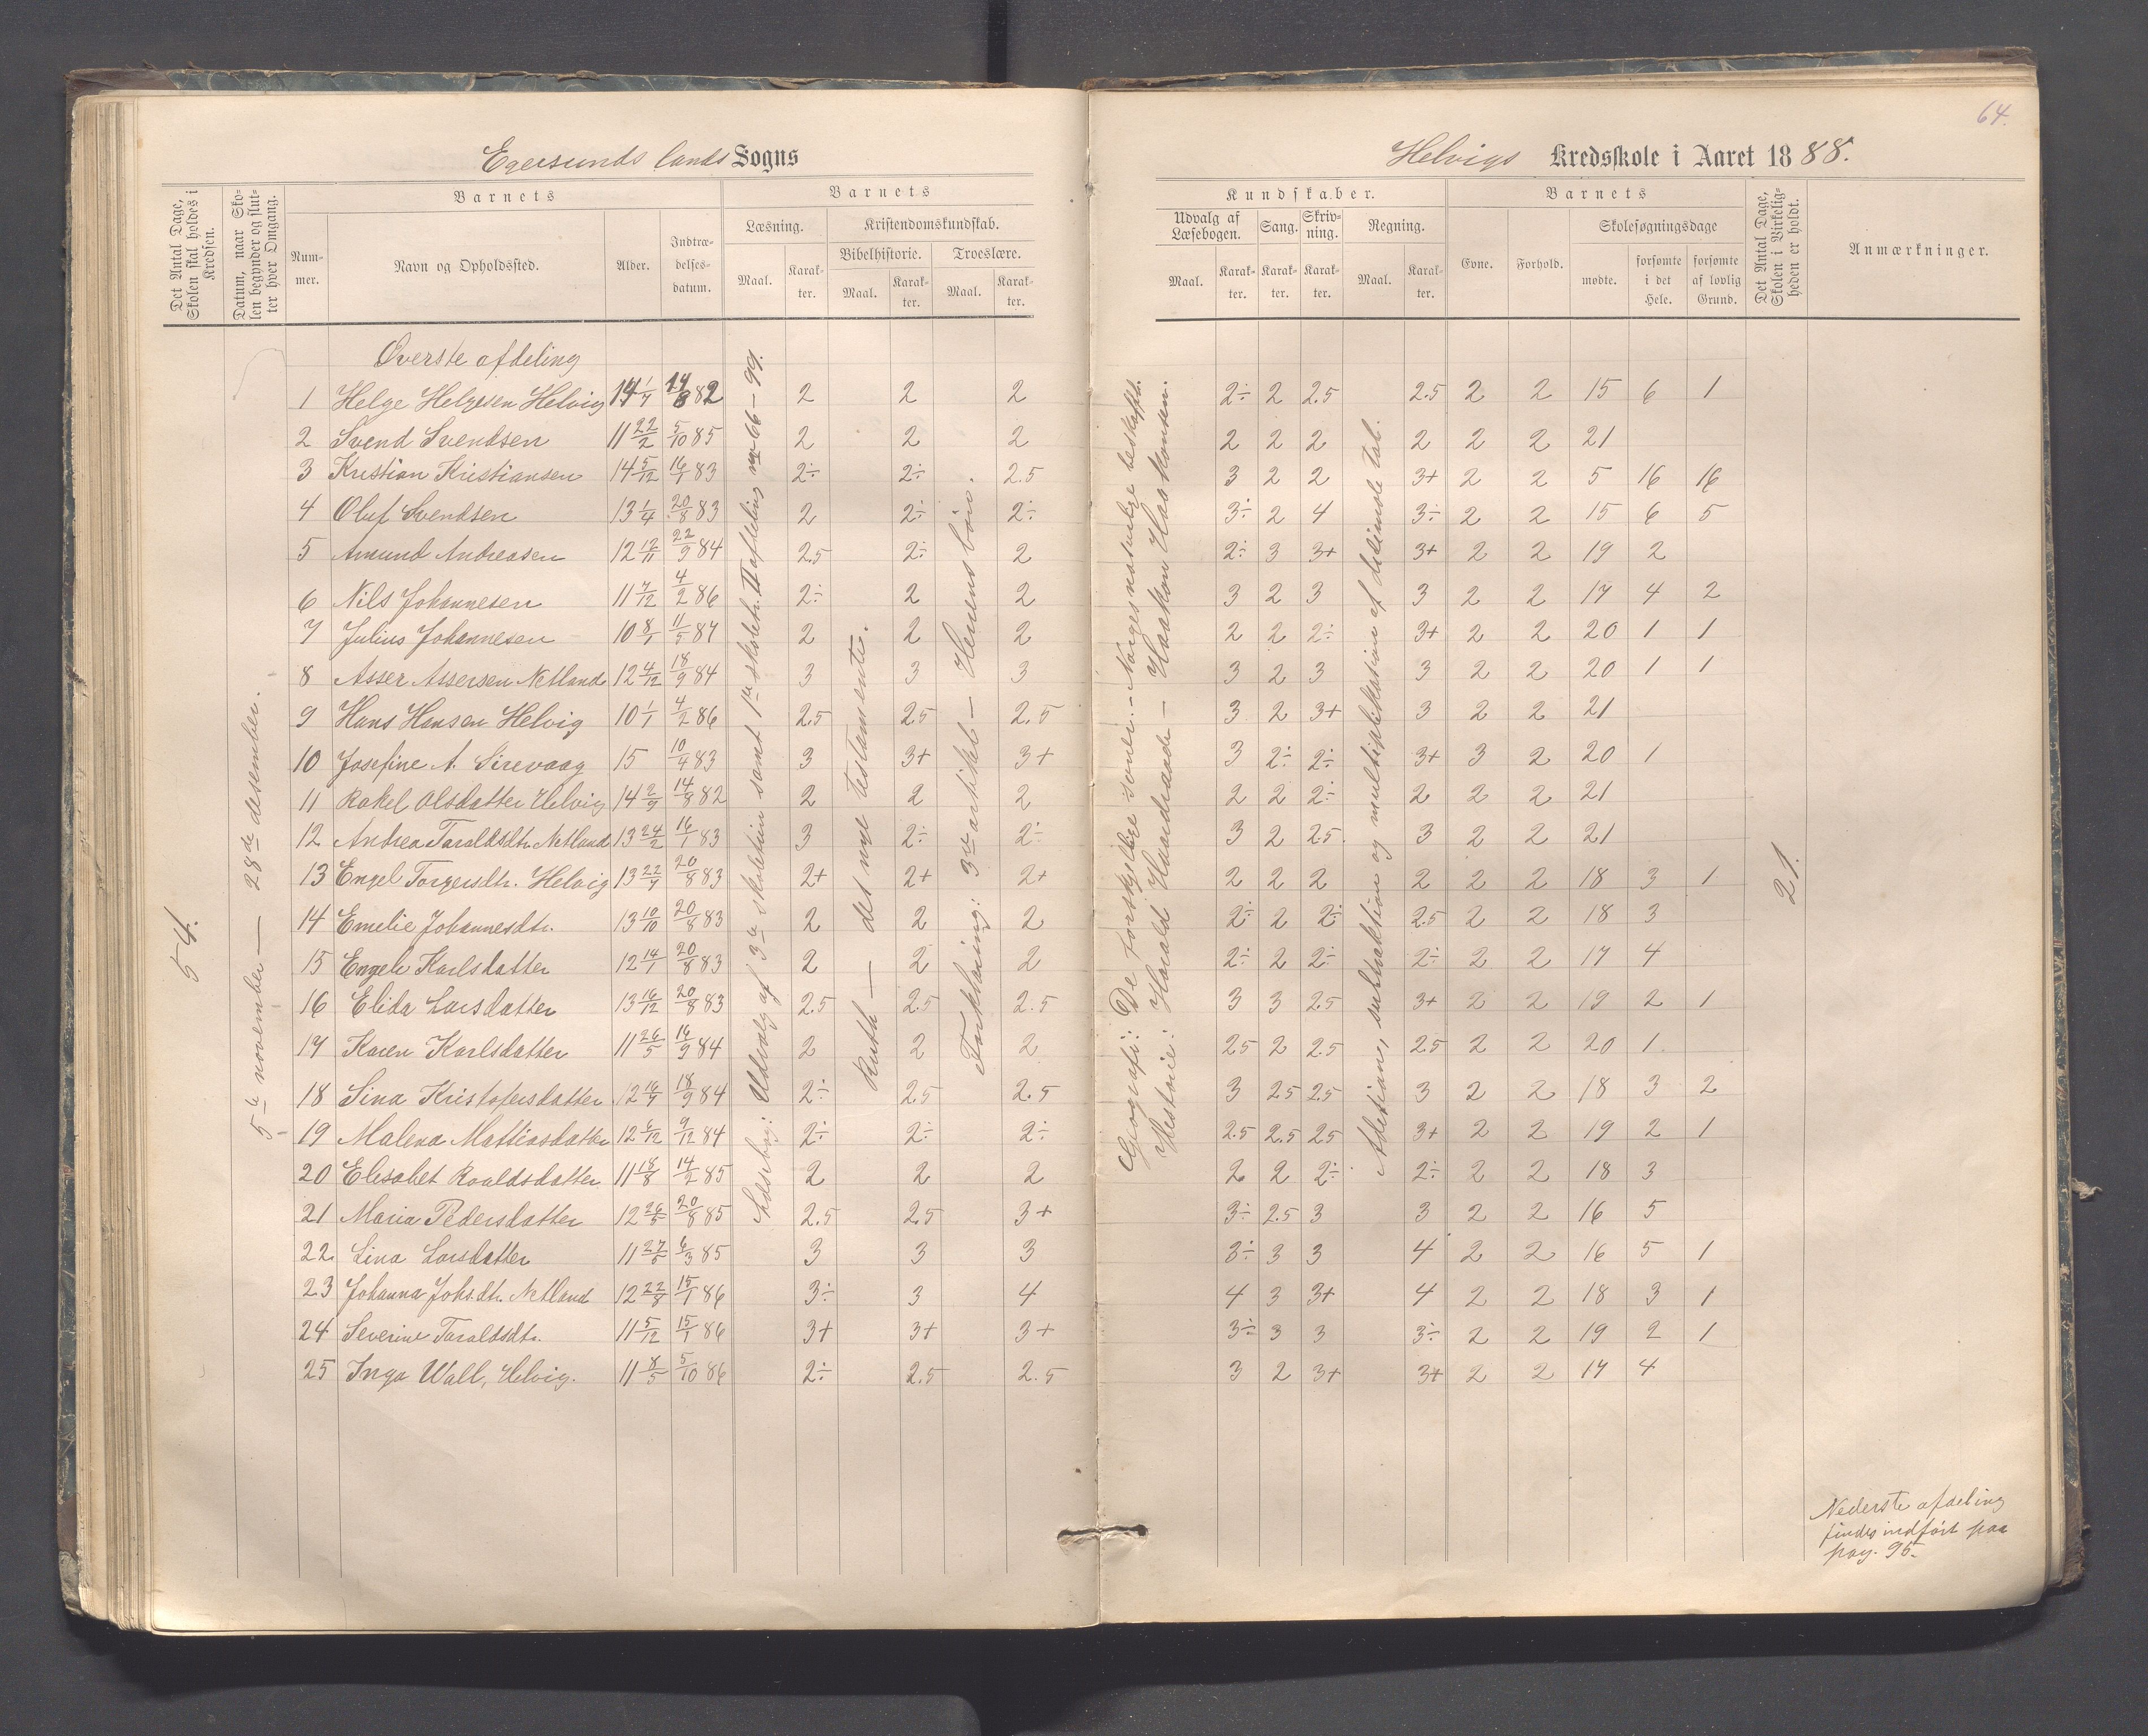 64.
Egersunds lands Sogns
Helvigs Kredsskole i Aaret 1888.
Det Antal Dage, Skolen skal holdes i Kredsen.
Datum, naar Skolen begynder og slutter hver Omgang.
Barnets
Nummer.
Navn og Opholdssted.
Alder.
Indtrædelses-datum.
Barnets
Læsning.
Maal.
Karakter.
Kristendomskundskab.
Bibelhistorie.
Maal.
Karakter.
Troeslære.
Maal.
Karakter.
Kundskaber.
Udvalg af Læsebogen.
Maal.
Karakter.
Sang.
Karakter.
Skrivning.
Karakter.
Regning.
Maal.
Karakter.
Barnets
Evne.
Forhold.
Skolesøgningsdage
mødte.
forsømte i det Hele.
forsømte af lovlig Grund.
Det Antal Dage, Skolen i Virkeligheden er holdt.
Anmærkninger.
54.
5te november — 28de desember.
Læsebog: Udvalg af 3die skoletrin samt 1ste skoletr. II afdeling nr. 66-99.
Ruth — det nye testamente.
Forklaring: 3die artikel — Herrens bøn.
Geografi: De forskjellige soner. — Norges naturlige beskaffh.
Historie: Harald Haardraade — Haakon Haakonsen.
Addition, subtraktion og multiplikation af desimale tal.
21.
Øverste afdeling
1 Helge Helgesen Helvig 14 1/7 14/8 82 2 2 2 2÷ 2 2.5 2.5 2 2 15 6 1
2 Svend Svendsen 11 22/2 5/10 85 2 2 2 2 2 2 2 2 2 21
3 Kristian Kristiansen 14 5/12 16/1 83 2÷ 2÷ 2.5 3 2 2 3+ 2 2 5 16 16
4 Oluf Svendsen 13 1/4 20/8 83 2 2÷ 2÷ 3÷ 2 4 3÷ 2 2 15 6 5
5 Amund Andreasen 12 12/11 22/9 84 2.5 2÷ 2 2÷ 3 3+ 3+ 2 2 19 2
6 Nils Johannesen 11 7/12 4/2 86 2÷ 2 2 3 2 3 3 2 2 17 4 2
7 Julius Johannesen 10 8/1 11/5 87 2 2 2 2 2 2÷ 3+ 2 2 20 1 1
8 Asser Assersen Netland 12 4/12 18/9 84 3 3 3 3 2 3 3 2 2 20 1 1
9 Hans Hansen Helvig 10 1/1 4/2 86 2.5 2.5 2.5 3 2 3+ 3 2 2 21
10 Josefine A. Sirevaag 15 10/4 83 3 3+ 3+ 3 2÷ 2÷ 3+ 3 2 20 1
11 Rakel Olsdatter Helvig 14 2/9 14/8 82 2 2 2 2 2 2÷ 2 2 2 21
12 Andrea Taraldsdtr. Netland 13 24/2 16/1 83 3 2÷ 2÷ 3 2 2.5 3 2 2 21
13 Engel Torgersdtr. Helvig 13 22/7 20/8 83 2+ 2+ 2+ 2 2 2 2 2 2 18 3 1
14 Emelie Johannesdtr. 13 10/10 20/8 83 2 2 2 2÷ 2 2÷ 2.5 2 2 18 3
15 Engele Karlsdatter 12 14/1 20/8 83 2 2 2 2÷ 2 2÷ 2÷ 2 2 17 4
16 Elida Larsdatter 13 16/12 20/8 83 2.5 2.5 2.5 3 3 2.5 3+ 2 2 19 2 1
17 Karen Karlsdatter 11 26/5 16/9 84 2 2 2 2.5 2 2.5 2.5 2 2 20 1
18 Sina Kristofersdatter 12 16/7 18/9 84 2÷ 2.5 2.5 3 2.5 2.5 3 2 2 18 3 2
19 Malena Mattiasdatter 12 6/12 9/12 84 2÷ 2÷ 2÷ 2.5 2.5 2.5 3+ 2 2 19 2 1
20 Elisabet Roaldsdatter 11 18/8 14/2 85 2 2 2 2 2 2÷ 2÷ 2 2 18 3
21 Maria Pedersdatter 12 26/5 20/8 85 2.5 2.5 3+ 3÷ 2.5 3 3 2 2 16 5
22 Lina Larsdatter 11 27/5 6/3 85 3 3 3 3÷ 3 3 4 2 2 16 5 1
23 Johanna Johs.dtr. Netland 12 22/8 15/1 86 3÷ 3 4 4 3 3+ 4 2 2 18 3 1
24 Severine Taraldsdtr. 11 5/12 15/1 86 3+ 3+ 3+ 3÷ 3 3 3÷ 2 2 19 2 1
25 Inga Wall, Helvig. 11 8/5 5/10 86 2÷ 2.5 2.5 3 2 3+ 3+ 2 2 17 4
Nederste afdeling
findes indført paa
pag. 95.